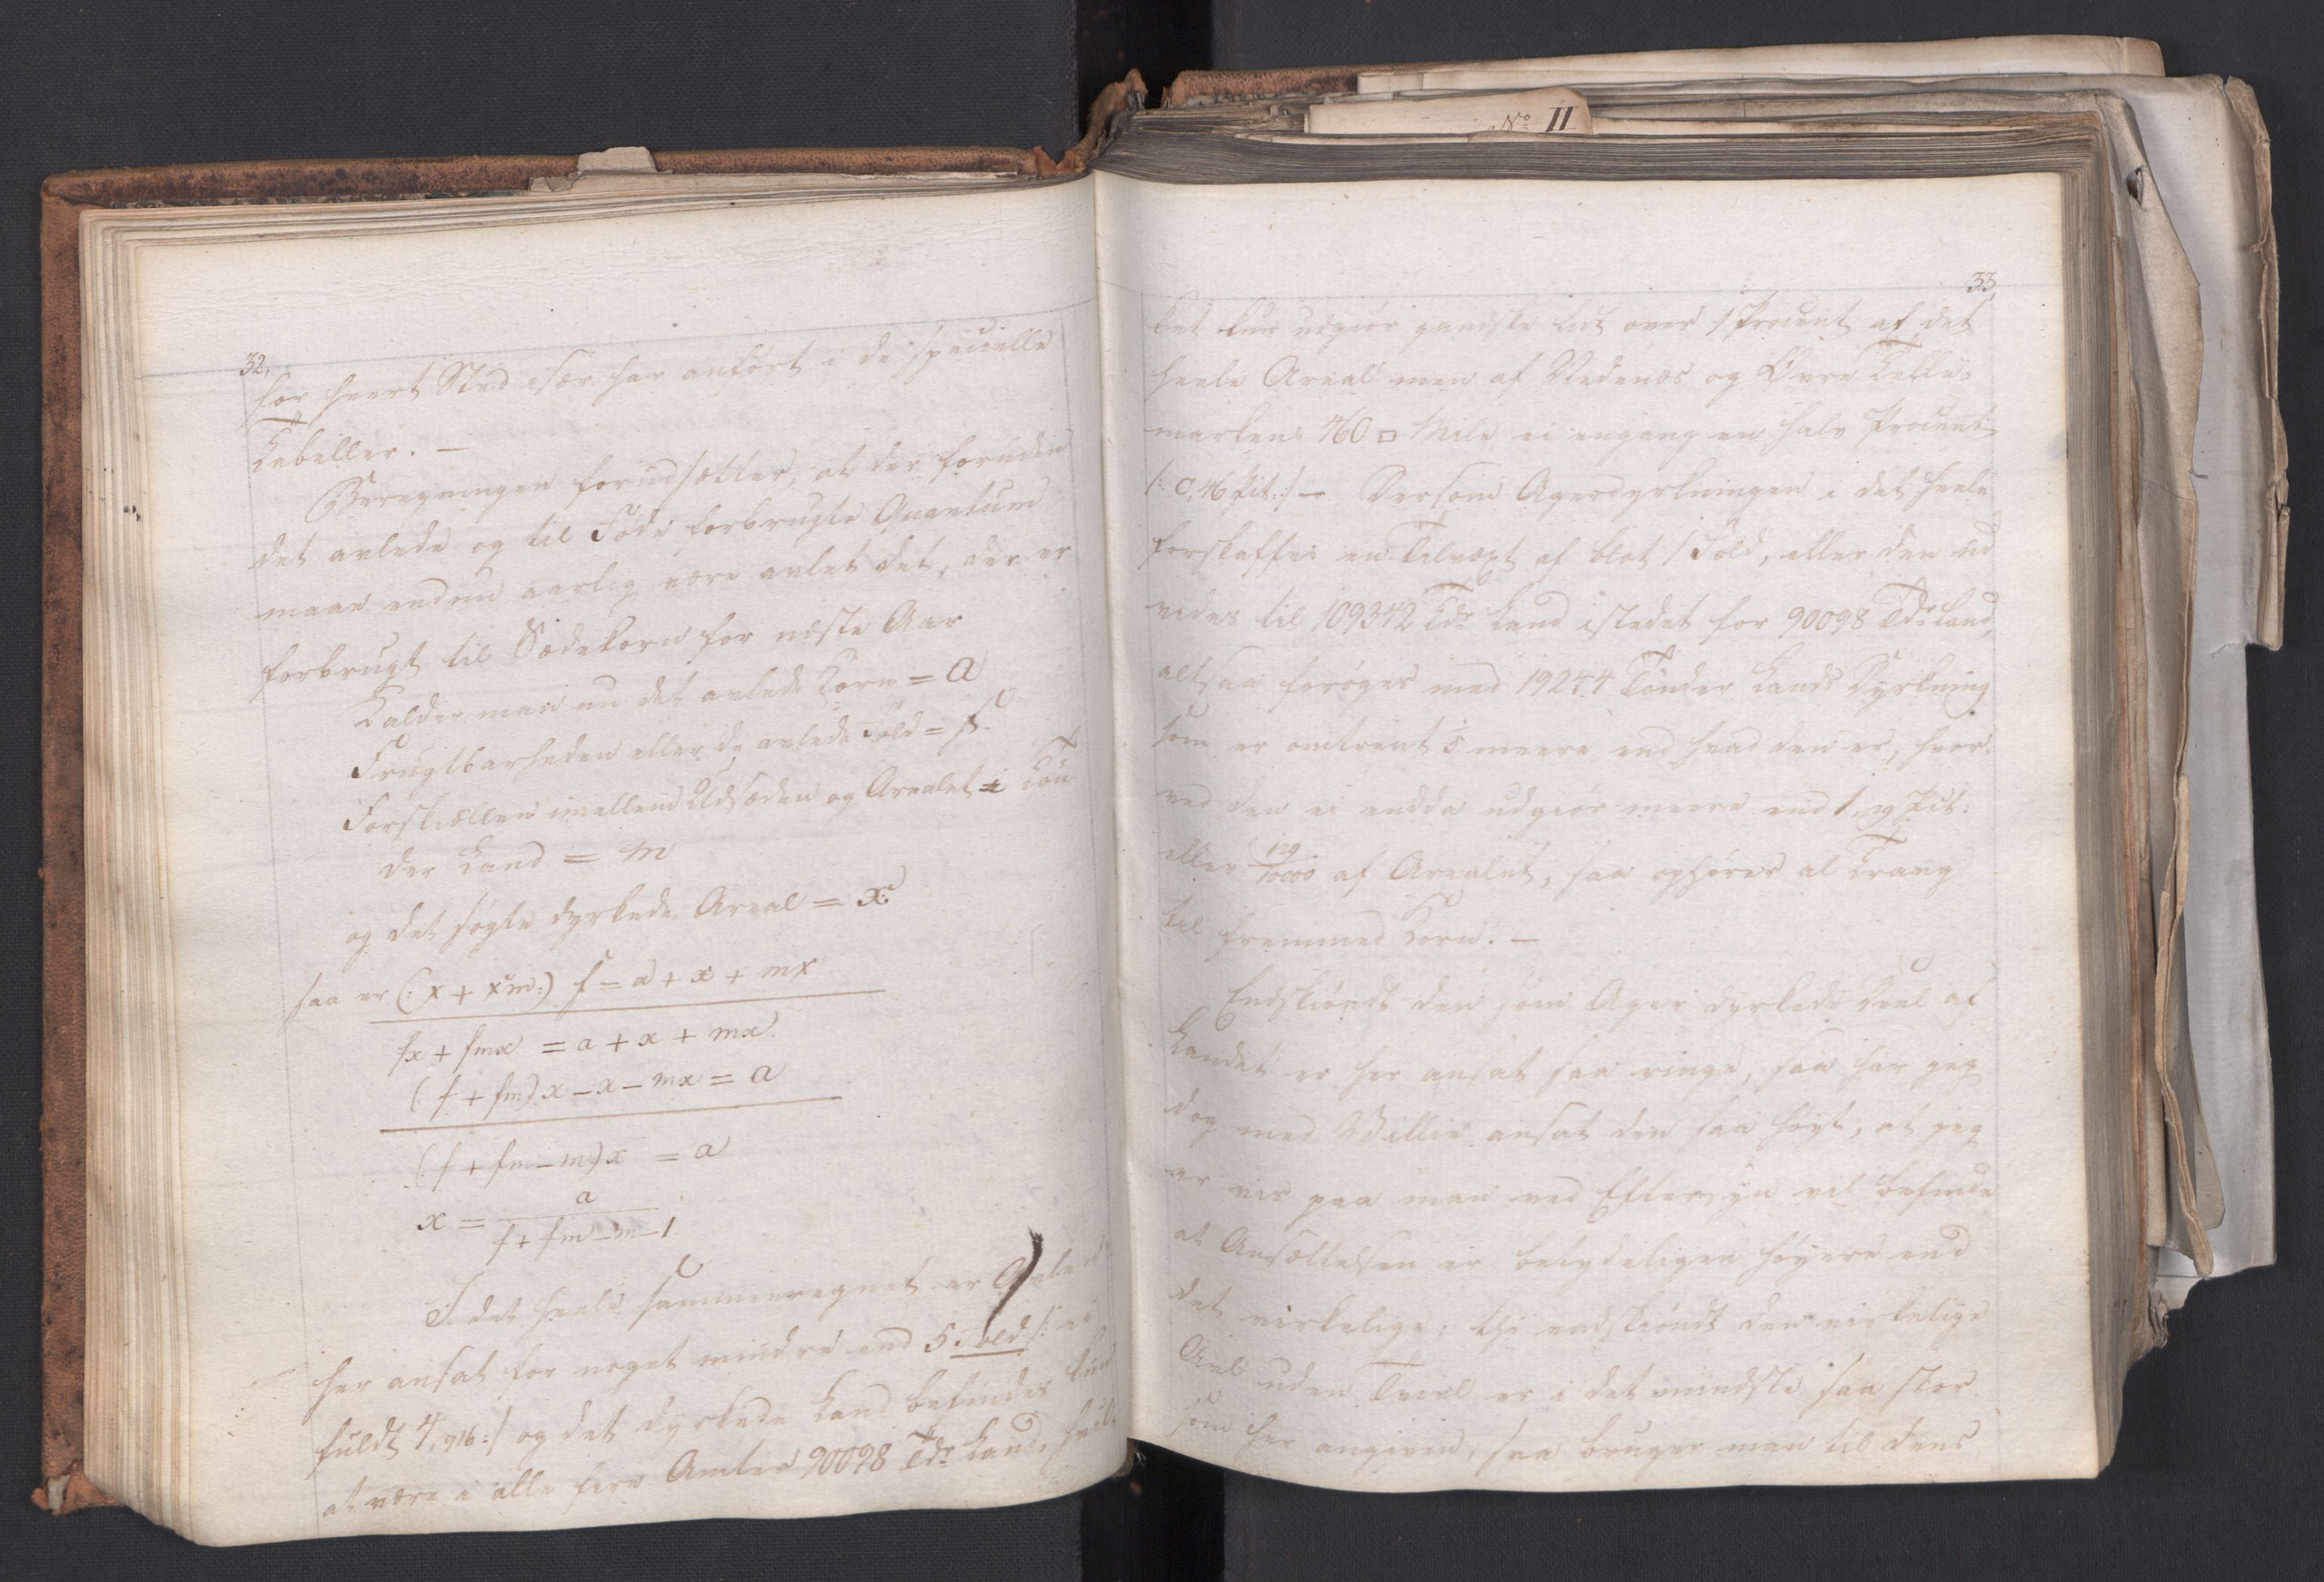 No II
32.
for hvert Sted især har anført i de specielle
Tabeller. —
Beregningen forudsætter, at der foruden
det avlede og til Føde forbrugte Quantum
maae endnu aarlig være avlet det, der er
forbrugt til Sædekorn for næste Aar
Kalder man nu det avlede Korn = a
Frugtbarheden eller de avlede Fold = f.
Forskiællen imellem Udsæden og Arealet i Tøn
der Land = m
og det søgte dyrkede Areal = x
saa er (: x + xm :) f = a + x + mx
fx + fmx = a + x + mx
(: f + fm) x - x - mx = a
(: f + fm - m) x = a
x = a / f + fm - m - 1
I det heele sammenregnet er Avlen
her ansat for noget mindre end 5 Fold /: ei
fuldt 4,916 :/ og det dyrkede Land befindes kun
at være i alle fire Amter 90098 Tdr Land, hvil
33
ket kun udgiør gandske lidt over 1 Procent af det
heele Areal men af Nedenæs og Øvre Telle-
markens 460 □ Mile ei engang en halv Procent
/: 0,46 pCt :/ — Dersom Agerdyrkningen i det heele
forskaffes en Tilvæxt af blot 1 Fold, eller den ud
vides til 109342 Tdr Land istedet for 90098 Tdr Land,
altsaa forøges med 19244 Tønder Lands Dyrkning
som er omtrent 5 meere end hvad den er, hvor-
ved den ei endda udgiør meere end 1,29 pCt.
eller 129/10000 af Arealet, saa ophører al Trang
til fremmed Korn. —
Endskiøndt den som Ager dyrkede Deel af
Landet er her ansat saa ringe, saa har jeg
dog med Villie ansat den saa høyt, at jeg
er vis paa man ved Eftersyn vil befinde
at Ansættelsen er betydeligen høyere end
det virkelige; thi endskiøndt den virkelige
Avl uden Tvivl er i det mindste saa stor
som her angiven, saa bruger man til dens